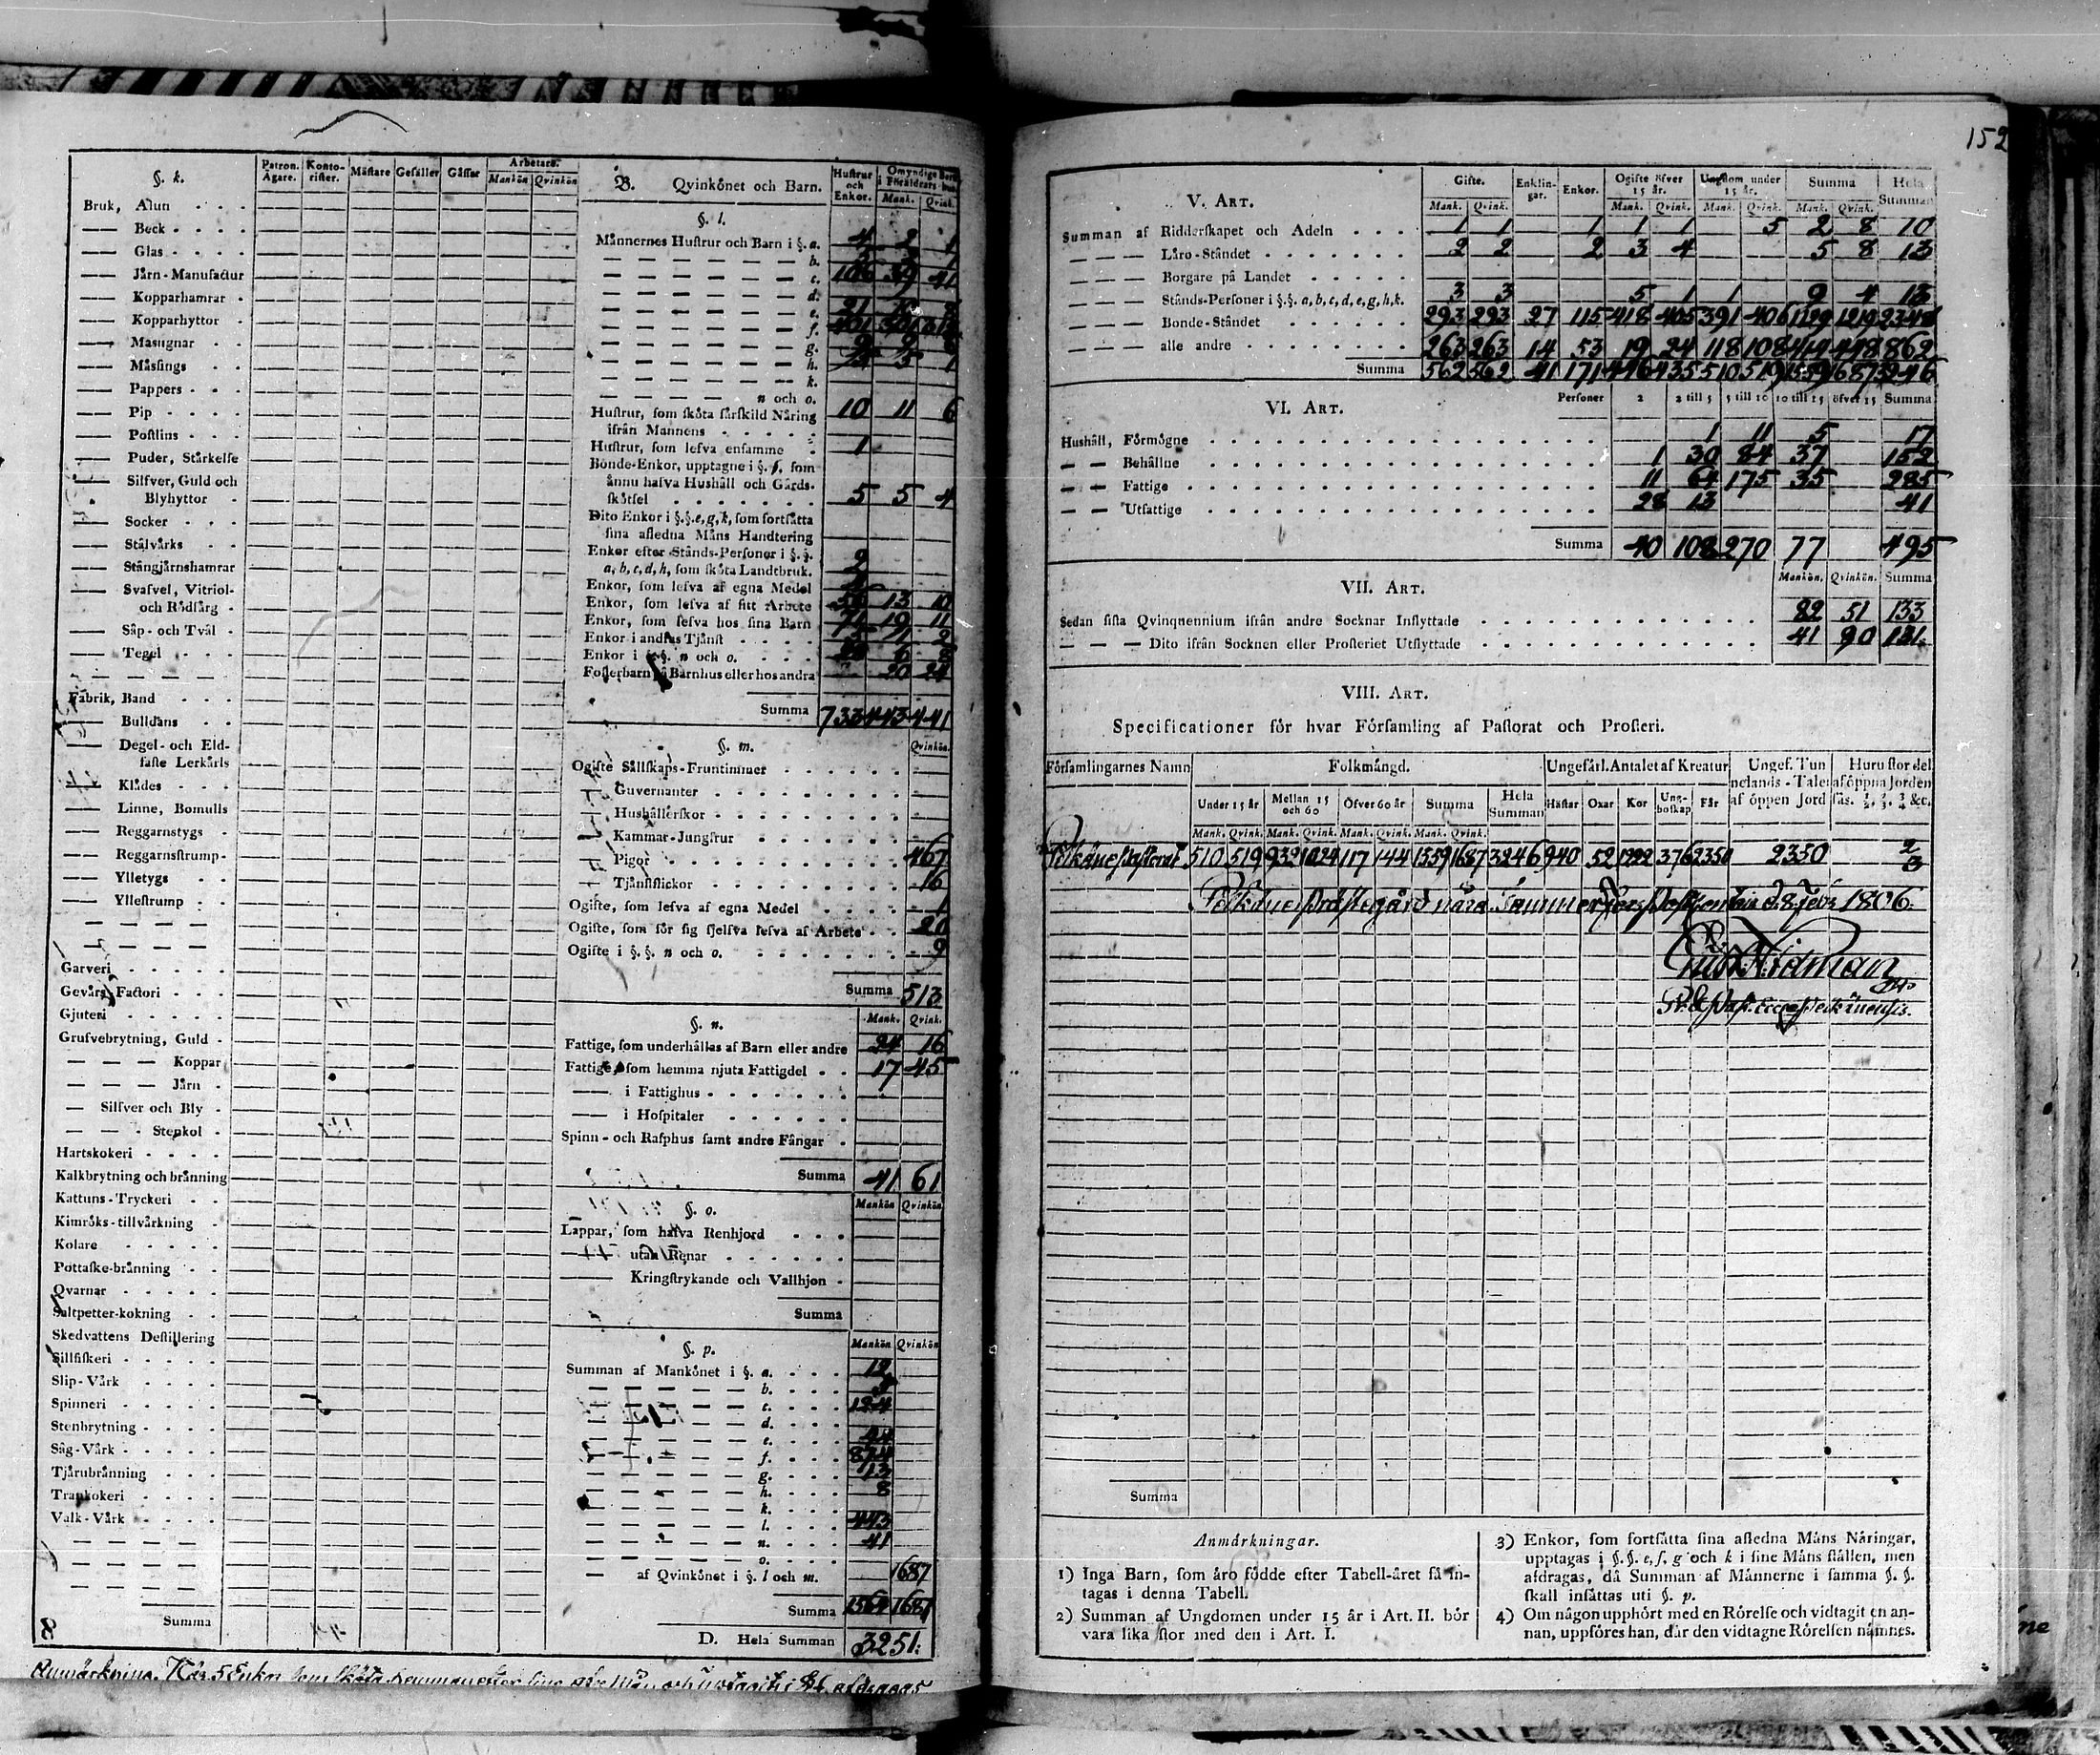 152
§. k.
Patron. Ägare.
Konto-rister.
Mästare
Gesäller
Gåssar
Arbetare.
Mankön Qvinkön
Bruk, Alun
Beck
Glas
Järn-Manufactur
Kopparhamrar
Kopparhyttor
Masugnar
Måssings
Pappers
Pip
Postlins
Puder, Stårkelse
Silfver, Guld och
Blyhyttor
Socker
Stålvårks
Stångjårnshamrar
Svafvel, Vitriol-
och Rödfårg
Såp- och Tvål
Tegel
Fabrik, Band
Bulldans
Degel- och Eld-
faste Lerkårls
Klådes
Linne, Bomulls
Reggarnstygs
Reggarnsstrump-
Ylletygs
Yllestrump
Garveri
Gevårs Factori
Gjuteri
Grufvebrytning, Guld
Koppar
Jårn
Silfver och Bly
Stenkol
Hartskokeri
Kalkbrytning och brånning
Kattuns-Tryckeri
Kimröks-tillvårkning
Kolare
Pottaske-brånning
Qvarnar
Saltpetter-kokning
Skedvattens Destillering
Sillfiskeri
Slip-Vårk
Spinneri
Stenbrytning
Såg-Vårk
Tjårubrånning
Trankokeri
Valk-Vårk
Summa
B. Qvinkönet och Barn.
Hustrur och Enkor.
Omyndige Barn i Föräldrars hus.
Mank. Qvink.
§. l.
Månnernes Hustrur och Barn i §. a. 4 2 1
b.
c. 106 39 41
d.
e. 21
f.
g.
h.
k.
n och o.
Hustrur, som sköta sårskild Nåring
ifrån Mannens 10 11 6
Hustrur, som lefva ensamme 1
Bonde-Enkor, upptagne i §. f. som
ånnu hafva Hushåll och Gårds-
skötsel 5 5 4
Dito Enkor i §.§. e, g, k, som fortsåtta
sina aflednа Måns Handtering
Enkor efter Stånds-Personer i §.§.
a, b, c, d, h, som sköta Landtbruk. 2
Enkor, som lefva af egna Medel
Enkor, som lefva af sitt Arbete 13
Enkor, som lefva hos sina Barn 19 11
Enkor i andras Tjånst 2
Enkor i §.§. n och o.
Fosterbarn på Barnhus eller hos andra 20 24
Summa 733 443 441
§. m. Qvinkön.
Ogifte Sållskaps-Fruntimmer
Guvernanter
Hushållerskor
Kammar-Jungfrur
Pigor 467
Tjånstflickor 16
Ogifte, som lefva af egna Medel 1
Ogifte, som för sig sjelfva lefva af Arbete 20
Ogifte i §.§. n och o. 9
Summa 513
§. n. Mank. Qvink.
Fattige, som underhållas af Barn eller andre 24 16
Fattige, som hemma njuta Fattigdel 17 45
i Fattighus
i Hospitaler
Spinn- och Rasphus samt andre Fångar
Summa 41 61
§. o. Mankön Qvinkön
Lappar, som hafva Renhjord
utan Renar
Kringstrykande och Vallhjon
Summa
§. p. Mankön Qvinkön
Summan af Mankönet i §. a. 12
b.
c. 124
d.
e.
f. 874
g. 13
h. 8
k.
l. 443
n. 41
o.
af Qvinkönet i §. l och m. 1687
Summa 1564 1687
D. Hela Summan 3251.
V. ART.
Gifte. Enklingar. Enkor. Ogifte öfver 15 år. Ungdom under 15 år. Summa Hela Summan
Mank. Qvink. Mank. Qvink. Mank. Qvink. Mank. Qvink.
Summan af Ridderskapet och Adeln 1 1 1 1 1 5 2 8 10
Låro-Ståndet 2 2 2 3 4 5 8 13
Borgare på Landet
Stånds-Personer i §.§. a, b, c, d, e, g, h, k. 3 3 5 1 1 9 4 13
Bonde-Ståndet 293 293 27 115 418 405 391 406 1129 1219 2348
alle andre 263 263 14 53 19 24 118 108 414 448 862
Summa 562 562 41 171 446 435 510 519 1559 1687 3246
VI. ART.
Personer 2 2 till 5 5 till 10 10 till 15 öfver 15 Summa
Hushåll, Förmögne 1 11 5 17
Behållne 1 30 84 37 152
Fattige 11 64 175 35 285
Utfattige 28 13 41
Summa 40 108 270 77 495
VII. ART.
Mankön. Qvinkön. Summa
Sedan sista Qvinqnennium ifrån andre Socknar Inflyttade 82 51 133
Dito ifrån Socknen eller Prosteriet Utflyttade 41 90 131.
VIII. ART.
Specificationer för hvar Församling af Pastorat och Prosteri.
Församlingarnes Namn
Folkmängd.
Ungefårl. Antalet af Kreatur
Ungef. Tunnelands-Talet af öppen Jord
Huru stor del af öppna Jorden sås. ½, ⅓, ¾ &c.
Under 15 år Mellan 15 och 60 Öfver 60 år Summa Hela Summan Håstar Oxar Kor Ungboskap Får
Mank. Qvink. Mank. Qvink. Mank. Qvink. Mank. Qvink.
Pelkäne Pastorat 510 519 932 1024 117 144 1559 1687 3246 940 52 1222 376 2350 2350 2/3
Pelkäne Prästegård nära Tammerfors d. 8. Febr. 1806.
Widman
Summa
Anmårkningar.
1) Inga Barn, som åro födde efter Tabell-året få in-
tagas i denna Tabell.
2) Summan af Ungdomen under 15 år i Art. II. bör
vara lika stor med den i Art. I.
3) Enkor, som fortsåtta sina aflednа Måns Nåringar,
upptagas i §.§. e, f, g och k i sine Måns stållen, men
afdragas, då Summan af Månnerne i samma §.§.
skall insåttas uti §. p.
4) Om någon upphört med en Rörelse och vidtagit en an-
nan, uppföres han, dår den vidtagne Rörelsen nåmnes.